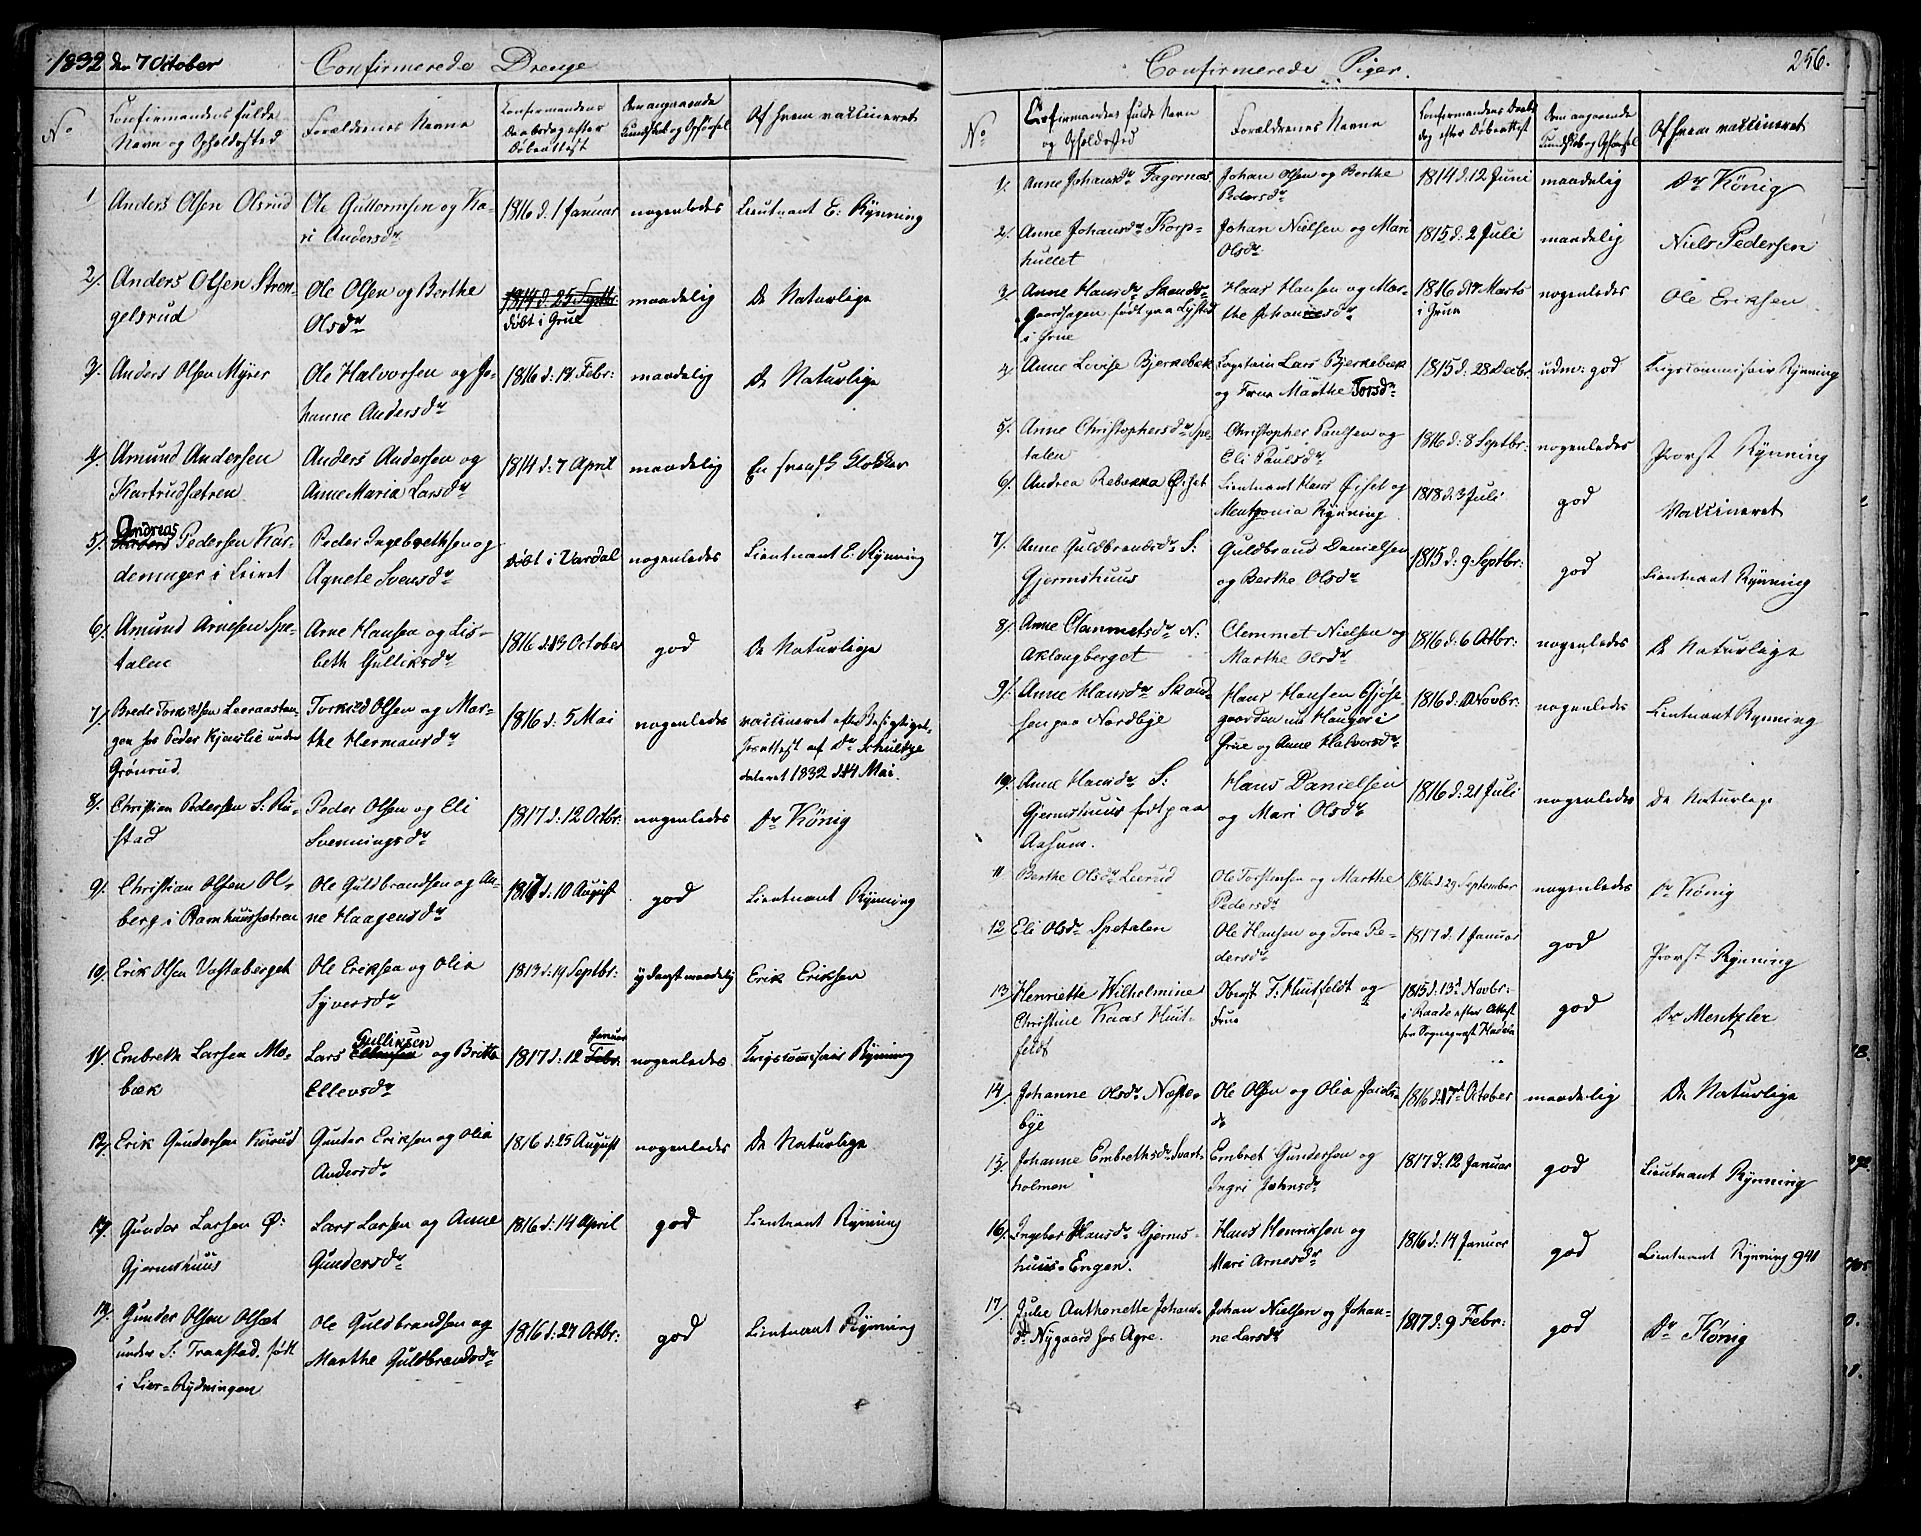 1832 den 7 October
Confirmerede Drenge
No
Confirmandens fulde
Navn og Opholdssted
Forældrenes Navne
Confirmandens
Daabsdag efter
Døbeattest
Dem angaaende
Kundskab og Opførsel
Af hvem vaccineret
1 Anders Olsen Olsrud
Ole Guttormsen og Ka-
ri Andersdr
1816 d: 1 Januar
nogenledes
Lieutnant E: Rynning
2/. Anders Olsen Stren-
gelsrud
Ole Olsen og Berthe
Olsdr
1814 d. 25 Septbr:
døbt i Grue
maadelig
De Naturlige
3/. Anders Olsen Myrer
Ole Halvorsen og Jo-
hanne Andersdr
1816 d: 18 Febr:
maadelig
De Naturlige
4/. Amund Andersen
Kartrudsætren
Anders Andersen og
Anne Maria Larsdr
1814 d: 7 April
maadelig
En svensk Klokker
Andreas
5/. Pedersen Kar-
demager i Leiret
Peder Ingebrethsen og
Agnete Svensdr
Døbt i Vardal
nogenledes
Lieutnant E. Rynning
6/. Amund Arnesen Spe-
talen
Arne Hansen og Lis-
beth Gulliksdr
1816 d: 13 October
god
De Naturlige
7/ Brede Torkildsen Leeraasten-
gen hos Peder Kjernlie under
Grønrud
Torkild Olsen og Mar-
the Hermansdr
1816 d: 5 Mai
nogenledes
vaccineret efter Besigtigel-
sesattest af Dr Schultze
dateret 1832 d 14 Mai.
8/. Christian Pedersen S: Ru-
stad
Peder Olsen og Eli
Svenningsdr
1817 d: 12 Octbr:
nogenledes
Dr König
9/. Christian Olsen Ol-
berg i Ramhuussætren
Ole Guldbrandsen og An-
ne Haagensdr
1817 d: 10 August
god
Lieutnant Rynning
10/. Erik Olsen Vestaberget
Ole Eriksen og Olia
Syversdr
1813 d: 19 Septbr:
yderst maadelig
Erik Eriksen
11/. Embreth Larsen Mo-
bæk
Gulliksen
Lars Ellensen og Britta
Ellevsdr
Januar
1817 d: 12 Febr:
nogenledes
Krigscommisair Rynning
12/. Erik Gundersen Kurud
Gunder Eriksen og Olia
Andersdr
1816 d: 25 August
nogenledes
De Naturlige
13/. Gunder Larsen Ø:
Gjermshuus
Lars Larsen og Anne
Gundersdr
1816 d: 14 April
god
Lieutnant Rynning
14/. Gunder Olsen Olset
under S: Traastad. født
i Lier-Rydningen
Ole Guldbrandsen og
Marthe Guldbrandsdr
1816 d: 27 Octbr:
god
Lieutnant Rynning
Confirmerede Piger.
256.
No
Confirmandens fulde Navn
og Opholdssted
Forældrenes Navne
Confirmandens Daabs-
dag efter Døbeattest
Dem angaaende
Kundskab og Opførsel
Af hvem vaccineret
1/. Anne Johansdr Fagernæs
Johan Olsen og Berthe
Pedersdr
1814 d: 12 Juni
maadelig
Dr König
2/. Anne Johansdr Korp-
hullet
Johan Nielsen og Mari
Olsdr
1815 d: 2 Juli
maadelig
Niels Pedersen
3/. Anne Hansdr Skands-
gaardhagen født paa Lysted
i Grue
Hans Hansen og Mar-
the Johannesdr
1816 d: 17 Marts
i Grue
nogenledes
Ole Eriksen
4/. Anne Lovise Bjerkebek
Capitain Lars Bjerkebæk
og Frue Marthe Torsdr
1815 d. 28 Decbr:
udm: god
Krigscommissair Rynning
5/. Anne Christophersdr Spe-
talen
Christopher Paulsen og
Eli Paulsdr
1816 d: 8 Septbr:
nogenledes
Provst Rynning
6/. Andrea Rebekka Øiset
Lieutnant Hans Øiset og
Mentzonia Rynning
1818 d: 3 Juli
god
Vaccineret
7/. Anne Guldbrandsdr S:
Gjermshuus
Guldbrand Danielsen
og Berthe Olsdr
1815 d: 9 Septbr:
god
Lieutnant Rynning
8/. Anne Clemmetsdr N:
Aklangberget
Clemmet Nielsen og
Marthe Olsdr
1816 d: 6 Octbr:
nogenledes
De Naturlige
9/. Anne Hansdr Skand-
sen paa Nordbye
Hans Hansen Gjøse-
gaarden nu Haugen i
Grue og Anne Halvorsdr
1816 d: Novbr:
nogenledes
Lieutnant Rynning
10/. Anne Hansdr S:
Gjermshuus født paa
Aasum.
Hans Danielsen
og Mari Olsdr
1816 d: 21 Juli
nogenledes
De Naturlige
11 Berthe Olsdr Leerud
Ole Torstensen og Marthe
Pedersdr
1816 d. 29 September
nogenledes
Dr König
12 Eli Olsdr Spetalen
Ole Hansen og Tore Pe-
dersdr
1817 d: 1 Januar
god
Provst Rynning
13 Henriette Wilhelmine
Christine Kaas Huit-
feldt
Oberst T: Huitfeldt og
Frue
1815 d: 13de Novbr:
i Raade efter Attest
fra Sognepræst
god
Dr Mentzler
14/. Johanne Olsdr Næste-
bye
Ole Olsen og Olia Jacobs-
dr
1816 d: 17de October
maadelig
De Naturlige
15/. Johanne Embrethsdr Svart-
holmen
Embret Gundersen og
Ingri Johnsdr
1817 d: 12 Januar
god
Lieutnant Rynning
16/. Ingebor Hansdr Gjerms-
huus-Engen.
Hans Henriksen og
Mari Arnesdr
1816 d: 14 Januar
god
Lieutnant Rynning 940
17/. Julie Anthonette Johans-
dr Nygaard hos Agre.
Johan Nielsen og Johan-
ne Larsdr
1817 d: 9 Febr:
god
Dr König